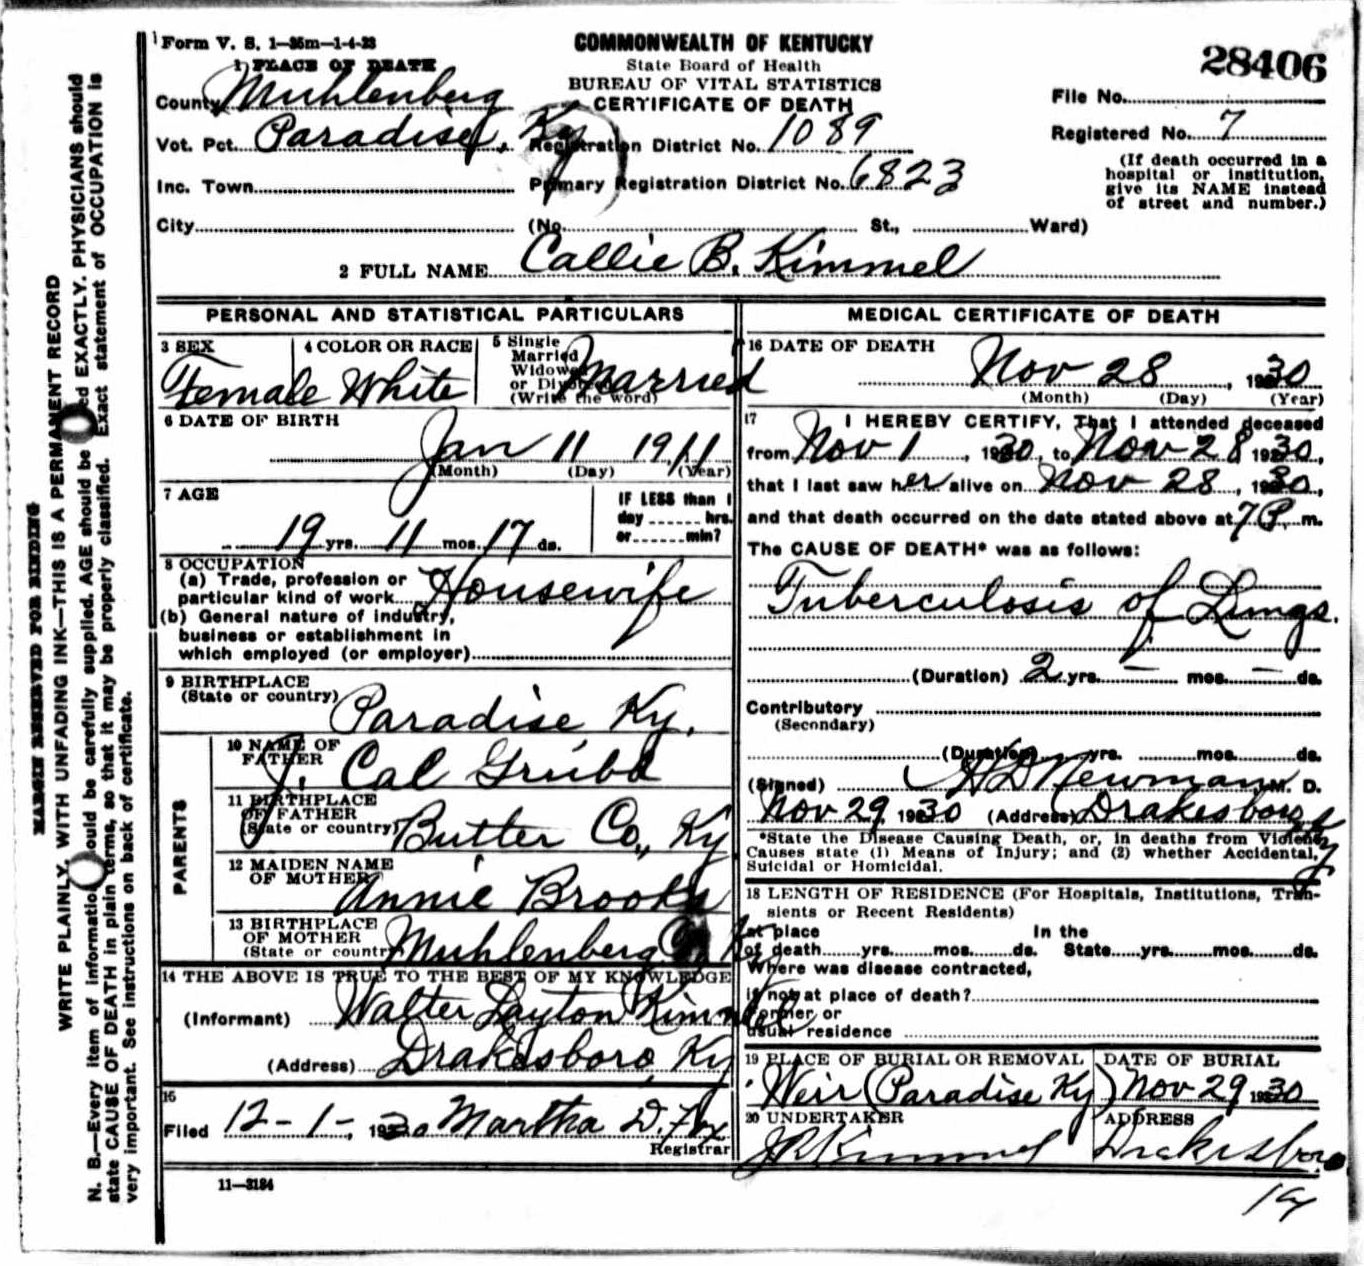 Form V. S. 1—35m—1-4-23
COMMONWEALTH OF KENTUCKY
State Board of Health
BUREAU OF VITAL STATISTICS
CERTIFICATE OF DEATH
28406
1 PLACE OF DEATH
County Muhlenberg
Vot. Pct. Paradise, Ky
Inc. Town
City
Registration District No. 1089
Primary Registration District No. 6823
(No. St., Ward)
File No.
Registered No. 7
(If death occurred in a
hospital or institution,
give its NAME instead
of street and number.)
2 FULL NAME Callie B. Kimmel
PERSONAL AND STATISTICAL PARTICULARS
3 SEX
Female
4 COLOR OR RACE
White
5 Single
Married
Widowed
or Divorced
(Write the word)
Married
6 DATE OF BIRTH
Jan 11 1911
(Month) (Day) (Year)
7 AGE
19 yrs. 11 mos. 17 ds.
IF LESS than 1
day ...... hrs.
or ...... min?
8 OCCUPATION
(a) Trade, profession or
particular kind of work Housewife
(b) General nature of industry,
business or establishment in
which employed (or employer)
9 BIRTHPLACE
(State or country) Paradise, Ky.
PARENTS
10 NAME OF
FATHER J. Cal Grubb
11 BIRTHPLACE
OF FATHER
(State or country) Butler Co., Ky
12 MAIDEN NAME
OF MOTHER Annie Brooks
13 BIRTHPLACE
OF MOTHER
(State or country) Muhlenberg Co Ky
14 THE ABOVE IS TRUE TO THE BEST OF MY KNOWLEDGE
(Informant) Walter Layton Kimmel
(Address) Drakesboro, Ky
15
Filed 12-1-, 1930 Martha D. Fox
Registrar
11—3184
MEDICAL CERTIFICATE OF DEATH
16 DATE OF DEATH
Nov 28, 1930
(Month) (Day) (Year)
17 I HEREBY CERTIFY, That I attended deceased
from Nov 1, 1930, to Nov 28, 1930,
that I last saw her alive on Nov 28, 1930,
and that death occurred on the date stated above at 7 P. m.
The CAUSE OF DEATH* was as follows:
Tuberculosis of Lungs.
(Duration) 2 yrs. — mos. — ds.
Contributory
(Secondary)
(Duration) yrs. mos. ds.
(Signed) H D Newman, M. D.
Nov 29, 1930 (Address) Drakesboro Ky
*State the Disease Causing Death, or, in deaths from Violent
Causes state (1) Means of Injury; and (2) whether Accidental,
Suicidal or Homicidal.
18 LENGTH OF RESIDENCE (For Hospitals, Institutions, Tran-
sients or Recent Residents)
At place In the
of death yrs. mos. ds. State yrs. mos. ds.
Where was disease contracted,
if not at place of death?
Former or
usual residence
19 PLACE OF BURIAL OR REMOVAL
Weir (Paradise Ky)
DATE OF BURIAL
Nov 29 1930
20 UNDERTAKER
J R Kimmel
ADDRESS
Drakesboro
MARGIN RESERVED FOR BINDING
WRITE PLAINLY, WITH UNFADING INK—THIS IS A PERMANENT RECORD
N. B.—Every item of information should be carefully supplied. AGE should be stated EXACTLY. PHYSICIANS should
state CAUSE OF DEATH in plain terms, so that it may be properly classified. Exact statement of OCCUPATION is
very important. See instructions on back of certificate.